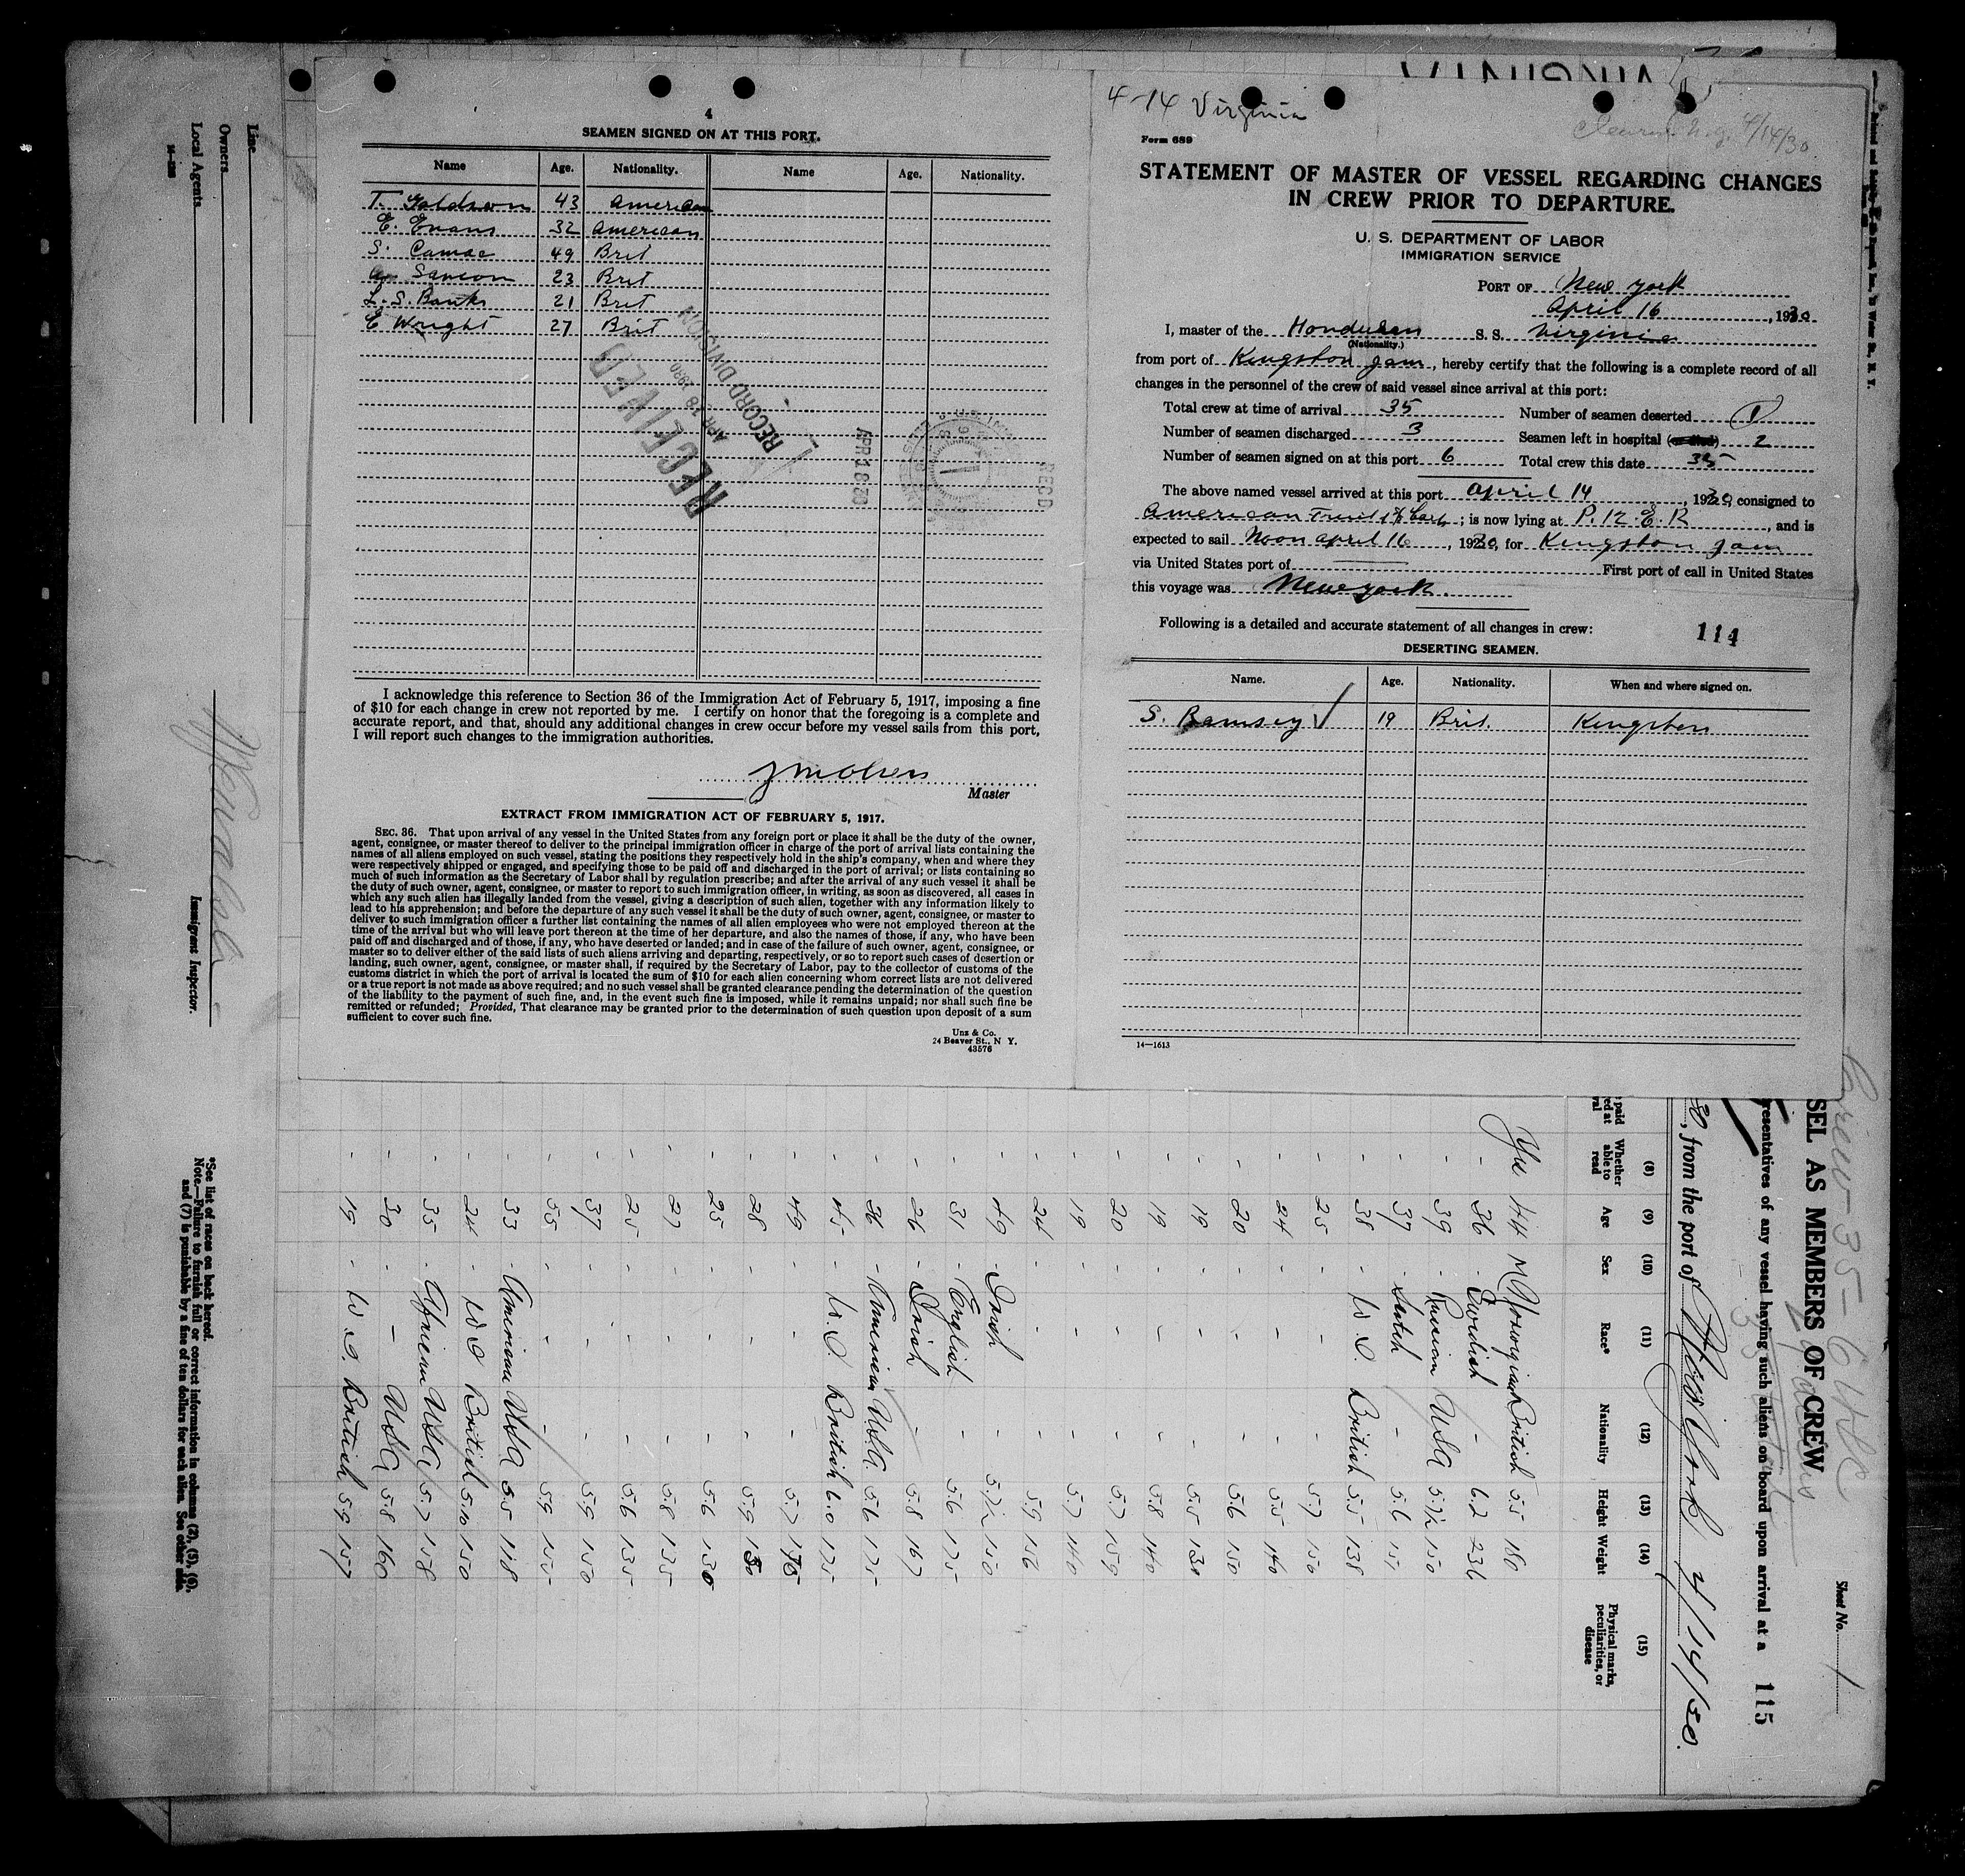 4
SEAMEN SIGNED ON AT THIS PORT.
Name Age. Nationality. Name Age. Nationality.
T. Goldson 43 American
E. Evans 32 American
S. Camac 49 Brit
Samson 23 Brit
L. S. Banks 21 Brit
E Wright 27 Brit
RECEIVED
APR 18 1930
RECORD DIVISION
APR 18 30
RECD
I acknowledge this reference to Section 36 of the Immigration Act of February 5, 1917, imposing a fine
of $10 for each change in crew not reported by me. I certify on honor that the foregoing is a complete and
accurate report, and that, should any additional changes in crew occur before my vessel sails from this port,
I will report such changes to the immigration authorities.
Master
EXTRACT FROM IMMIGRATION ACT OF FEBRUARY 5, 1917.
SEC. 36. That upon arrival of any vessel in the United States from any foreign port or place it shall be the duty of the owner,
agent, consignee, or master thereof to deliver to the principal immigration officer in charge of the port of arrival lists containing the
names of all aliens employed on such vessel, stating the positions they respectively hold in the ship's company, when and where they
were respectively shipped or engaged, and specifying those to be paid off and discharged in the port of arrival; or lists containing so
much of such information as the Secretary of Labor shall by regulation prescribe; and after the arrival of any such vessel it shall be
the duty of such owner, agent, consignee, or master to report to such immigration officer, in writing, as soon as discovered, all cases in
which any such alien has illegally landed from the vessel, giving a description of such alien, together with any information likely to
lead to his apprehension; and before the departure of any such vessel it shall be the duty of such owner, agent, consignee, or master to
deliver to such immigration officer a further list containing the names of all alien employees who were not employed thereon at the
time of the arrival but who will leave port thereon at the time of her departure, and also the names of those, if any, who have been
paid off and discharged and of those, if any, who have deserted or landed; and in case of the failure of such owner, agent, consignee, or
master so to deliver either of the said lists of such aliens arriving and departing, respectively, or so to report such cases of desertion or
landing, such owner, agent, consignee, or master shall, if required by the Secretary of Labor, pay to the collector of customs of the
customs district in which the port of arrival is located the sum of $10 for each alien concerning whom correct lists are not delivered
or a true report is not made as above required; and no such vessel shall be granted clearance pending the determination of the question
of the liability to the payment of such fine, and, in the event such fine is imposed, while it remains unpaid; nor shall such fine be
remitted or refunded; Provided, That clearance may be granted prior to the determination of such question upon deposit of a sum
sufficient to cover such fine.
Unz & Co.
24 Beaver St., N Y.
43576
4-14 Virginia
4/14/30
Form 689
STATEMENT OF MASTER OF VESSEL REGARDING CHANGES
IN CREW PRIOR TO DEPARTURE.
U. S. DEPARTMENT OF LABOR
IMMIGRATION SERVICE
PORT OF New York
April 16, 1930
I, master of the Honduran S. S. Virginia
(Nationality.)
from port of Kingston Jam, hereby certify that the following is a complete record of all
changes in the personnel of the crew of said vessel since arrival at this port:
Total crew at time of arrival 35 Number of seamen deserted 1
Number of seamen discharged 3 Seamen left in hospital 2
Number of seamen signed on at this port 6 Total crew this date 35
The above named vessel arrived at this port April 14, 1930, consigned to
American Fruit; is now lying at P. 12 E. R, and is
expected to sail Noon April 16, 1930, for Kingston Jam
via United States port of First port of call in United States
this voyage was New York.
Following is a detailed and accurate statement of all changes in crew:
114
DESERTING SEAMEN.
Name. Age. Nationality. When and where signed on.
S. Ramsey 19 Brit. Kingston
14—1613
Line
Owners
Local Agents
Immigrant Inspector.
*See list of races on back hereof.
Note.—Failure to furnish full or correct information in columns (2), (5), (6),
and (7) is punishable by a fine of ten dollars for each alien. See other side.
Sheet No. 1
Crew 35
SEL AS MEMBERS OF CREW
resentatives of any vessel having such aliens on board upon arrival at a 115
30, from the port of New York 4/14/30.
(8) (9) (10) (11) (12) (13) (14) (15)
Whether able to read Age Sex Race* Nationality Height Weight Physical marks, peculiarities, or disease
44 M Norwegian British 5.5 180
- 36 - Swedish - 6.2 236
- 39 - Russian USA 5.7½ 150
- 37 - - 5.6
- 38 - W.I. British 5.5 138
- 25 - - - 5.7 150
- 24 - - - 5.5 140
- 20 - - - 5.6 150
- 19 - - - 5.5
- 19 - - - 5.8 140
- 20 - - - 5.7 159
- 19 - - - 5.7 160
- 24 - - - 5.9 156
- 49 - Irish - 5.7½ 150
- 31 - English - 5.6 175
- 26 - Irish - 5.8 167
- 36 - American U.S.A. 5.6 175
- 45 - W.I. British 6.0 175
- 49 - - - 5.7
- 28 - - - 5.9
- 25 - - - 5.6 130
- 27 - - - 5.8 135
- 25 - - - 5.6 135
- 37 - - - 5.9 150
- 55 - - - 5.9 150
- 33 - American USA 5.5 118
- 24 - W I British 5.10 150
- 35 - African USA 5.7 158
- 30 - - USA 5.8 160
- 19 - W.I. British 5.9 157